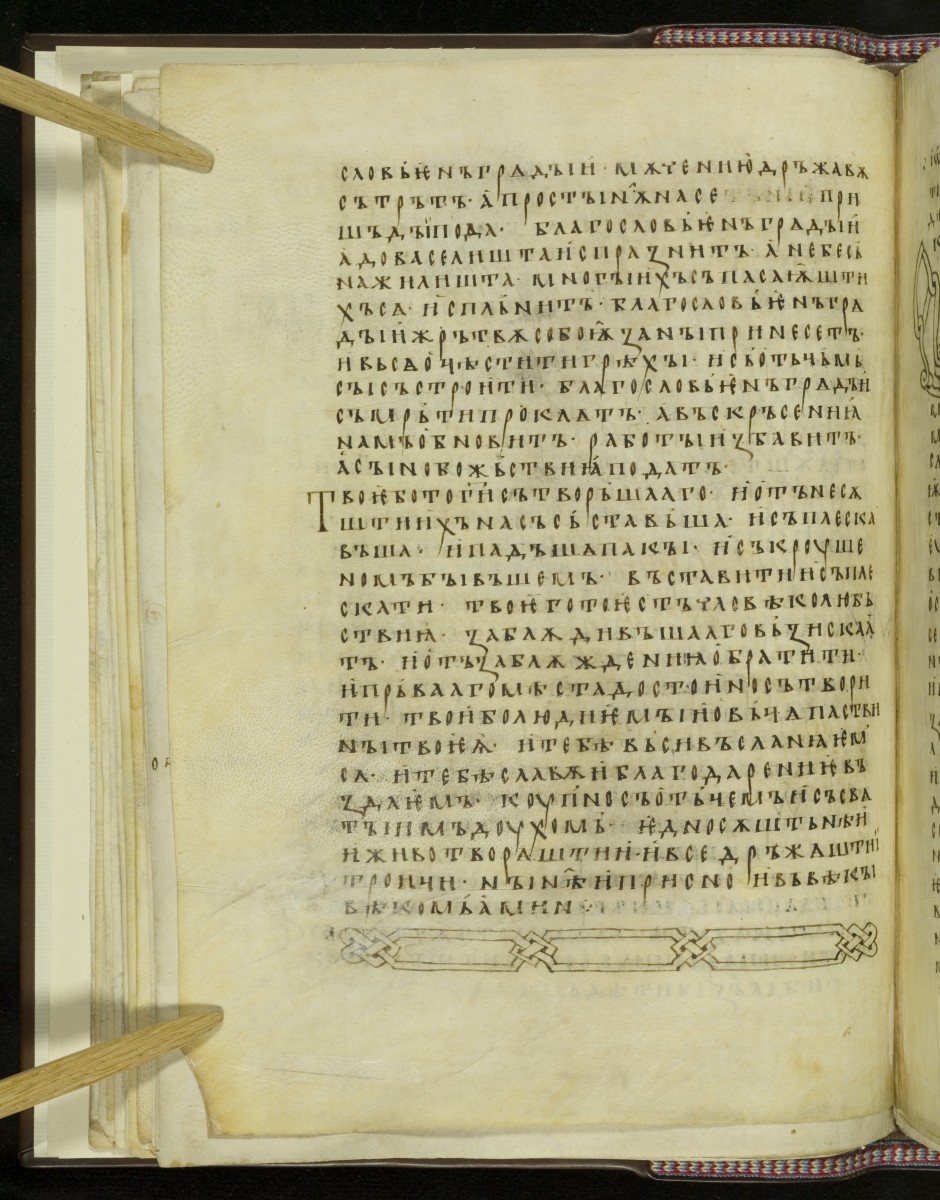 словьѥнъ градꙑи · мѫчению дръжавѫ
сътрътъ · а простꙑнѭ на се при
шьдꙑ пода · благословьѥнъ градꙑи
адова селишта испразнитъ · а небесь
на жилишта · многꙑихъ съпасаѭшти
хъ сѧ · исплънитъ · благословьѥнъ гра
дꙑи жрьтвѫ собоѭ за нꙑ принесетъ ·
и вьсѧ очѣстити грѣхꙑ · и сь отьчьмь
сꙑ състроити · благословьѥнъ градꙑи
съмрьти проклѧтъ · а въскрьсениꙗ
намъ обновитъ · работꙑ избавитъ ·
а сꙑново божьствиꙗ податъ ·
Твоѥ бо то г҃и сътворьшааго · и отъ несѫ
штиихъ насъ съставьша · и съплеска
въша · и падъша пакꙑ · и съкроуше
номъ бꙑвъшемъ · въставити и съпле
скати · твоѥго то ѥстъ чловѣколюбь
ствиꙗ · заблѫдивъшааго възискаа
тъ · и отъ заблѫждениꙗ обратити ·
и прьвааго мѣста достоино сътвори
ти · твои бо людиѥ мꙑ и овьчѧ паствин
нꙑ твоѥѩ · и тебѣ вьси въсланꙗѥм
сѧ · и тебѣ славѫ и благодарениѥ въ
здаѥмъ · коупьно съ отьчемъ и съ свѧ
тꙑимъ доухомь · ѥдносѫштьнѣи
и животворѧштии · и вседръжаштии
троичи · нꙑнѣ и присно и въ вѣкꙑ
вѣкомъ аминъ